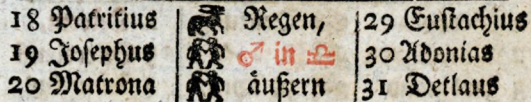 18 Patritius Regen, 29 Eustachius
19 Josephus ♂ in ♎ 30 Adonias
20 Matrona äußern 31 Detlaus